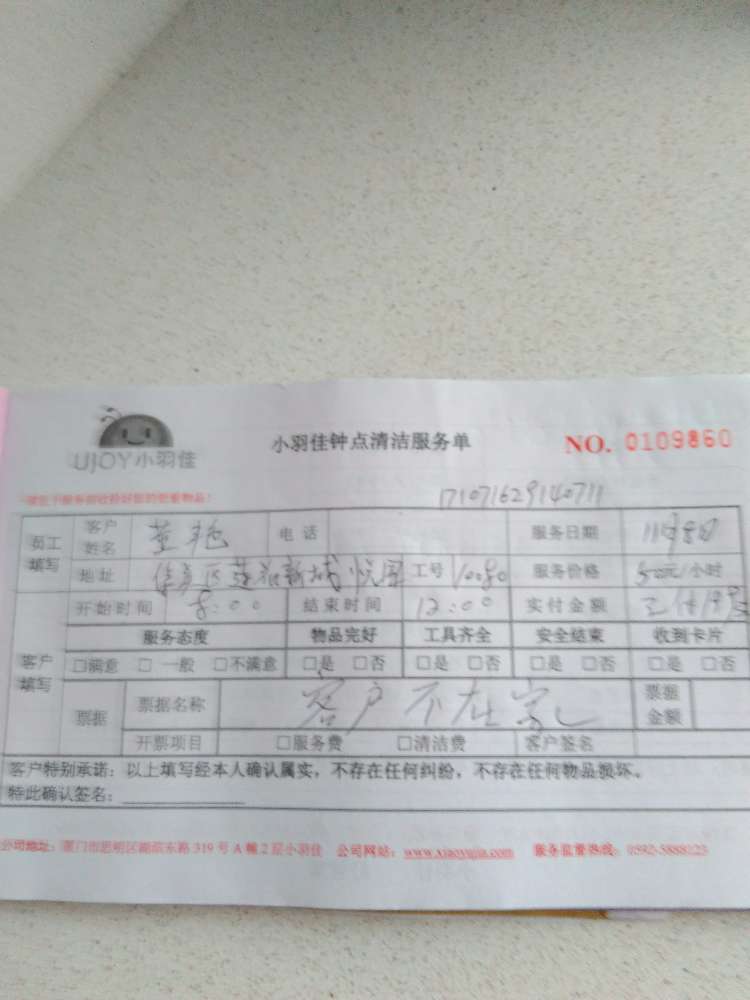 UJOY小羽佳
小羽佳钟点清洁服务单
NO. 0109860
17107162914071​1
员工填写 客户姓名 董艳 电话 服务日期 11月8日
地址 工号 10080 服务价格 50元/小时
客户填写 开始时间 8:00 结束时间 12:00 实付金额
服务态度 物品完好 工具齐全 安全结束 收到卡片
□满意 □一般 □不满意 □是 □否 □是 □否 □是 □否 □是 □否
票据 票据名称 客户不在家 票据金额
开票项目 □服务费 □清洁费 客户签名
客户特别承诺：以上填写经本人确认属实，不存在任何纠纷，不存在任何物品损坏。
特此确认签名：
公司地址：厦门市思明区湖滨东路 319 号 A 幢 2 层小羽佳 公司网站：www.xiaoyujia.com 服务监督热线：0592-5888123